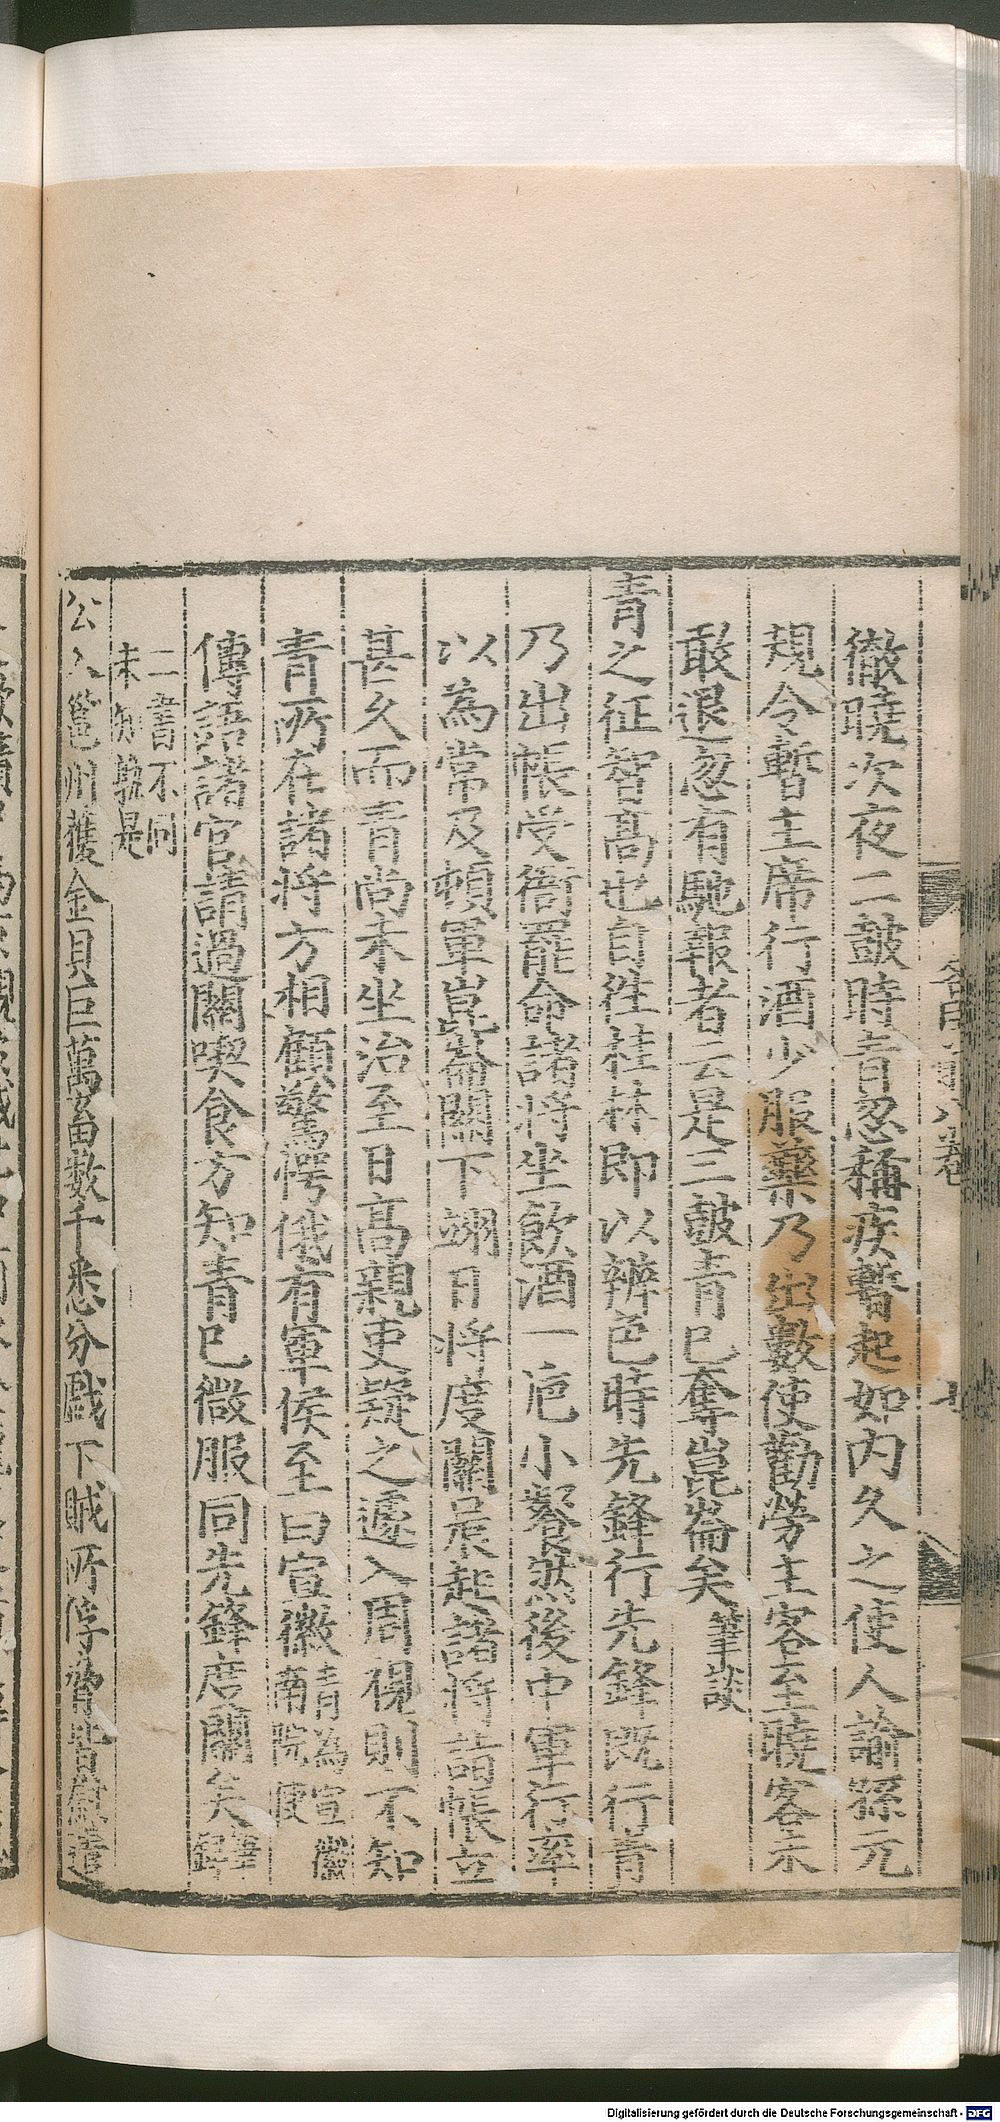 徹曉次夜二鼓時青忽稱疾暫起如内久之使人諭孫元
規令暫主席行酒少服藥乃出數使勸勞主客至曉客未
敢退忽有馳報者云是三鼓青已奪崑崙矣筆談
青之征智高也自往桂林即以辨色時先鋒行先鋒既行青
乃出帳受衙罷命諸將坐飲酒一巵小餐然後中軍行率
以為常及頓軍崑崙關下翊日將度關晨起諸將詣帳立
甚久而青尚未坐治至日高親吏疑之遽入周視則不知
青所在諸將方相顧驚愕俄有軍侯至曰宣徽青為宣徽南院使
傳語諸官請過關喫食方知青已微服同先鋒度關矣
二書不同
未知孰是
公入邕州獲金貝巨萬畜數千悉分戲下賊所俘脅皆慰遣
Digitalisierung gefördert durch die Deutsche Forschungsgemeinschaft - DFG